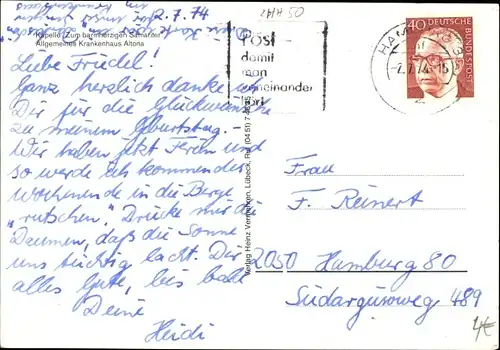 2.7.74
2HH 50
Kapelle „Zum barmherzigen Samariter"
Allgemeines Krankenhaus Altona
Liebe Friedel!
Ganz herzlich danke ich
Dir für die Glückwünsche
zu meinem Geburtstag. -
Wir haben jetzt Ferien und
so werde ich kommendes
Wochenende in die Berge
„rutschen". Drücke mir die
Daumen, daß die Sonne
uns tüchtig lacht. Dir
alles Gute, bis bald
Deine
Heidi
POST -
damit
man
voneinander
hört
HAMBURG
-2.7.74-16
2
40
DEUTSCHE BUNDESPOST
Verlag Heinz Vermehren, Lübeck, Ruf (0451)
Frau
F. Reinert
2050 Hamburg 80
Südargusoweg 489